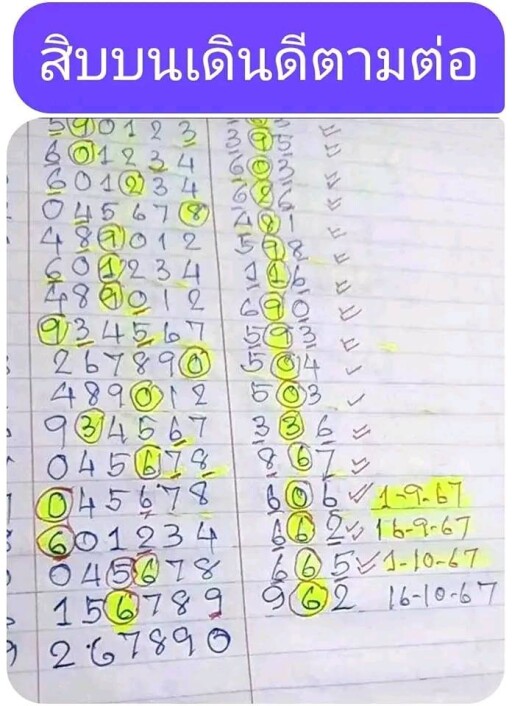 สิบบนเดินดีตามต่อ
590123 395
601234 603
601234 626
045678 481
489012 598
601234 116
489012 690
934567 593
267890 504
489012 503
934567 336
045678 867
045678 606 1-9-67
601234 662 16-9-67
045678 665 1-10-67
156789 962 16-10-67
267890